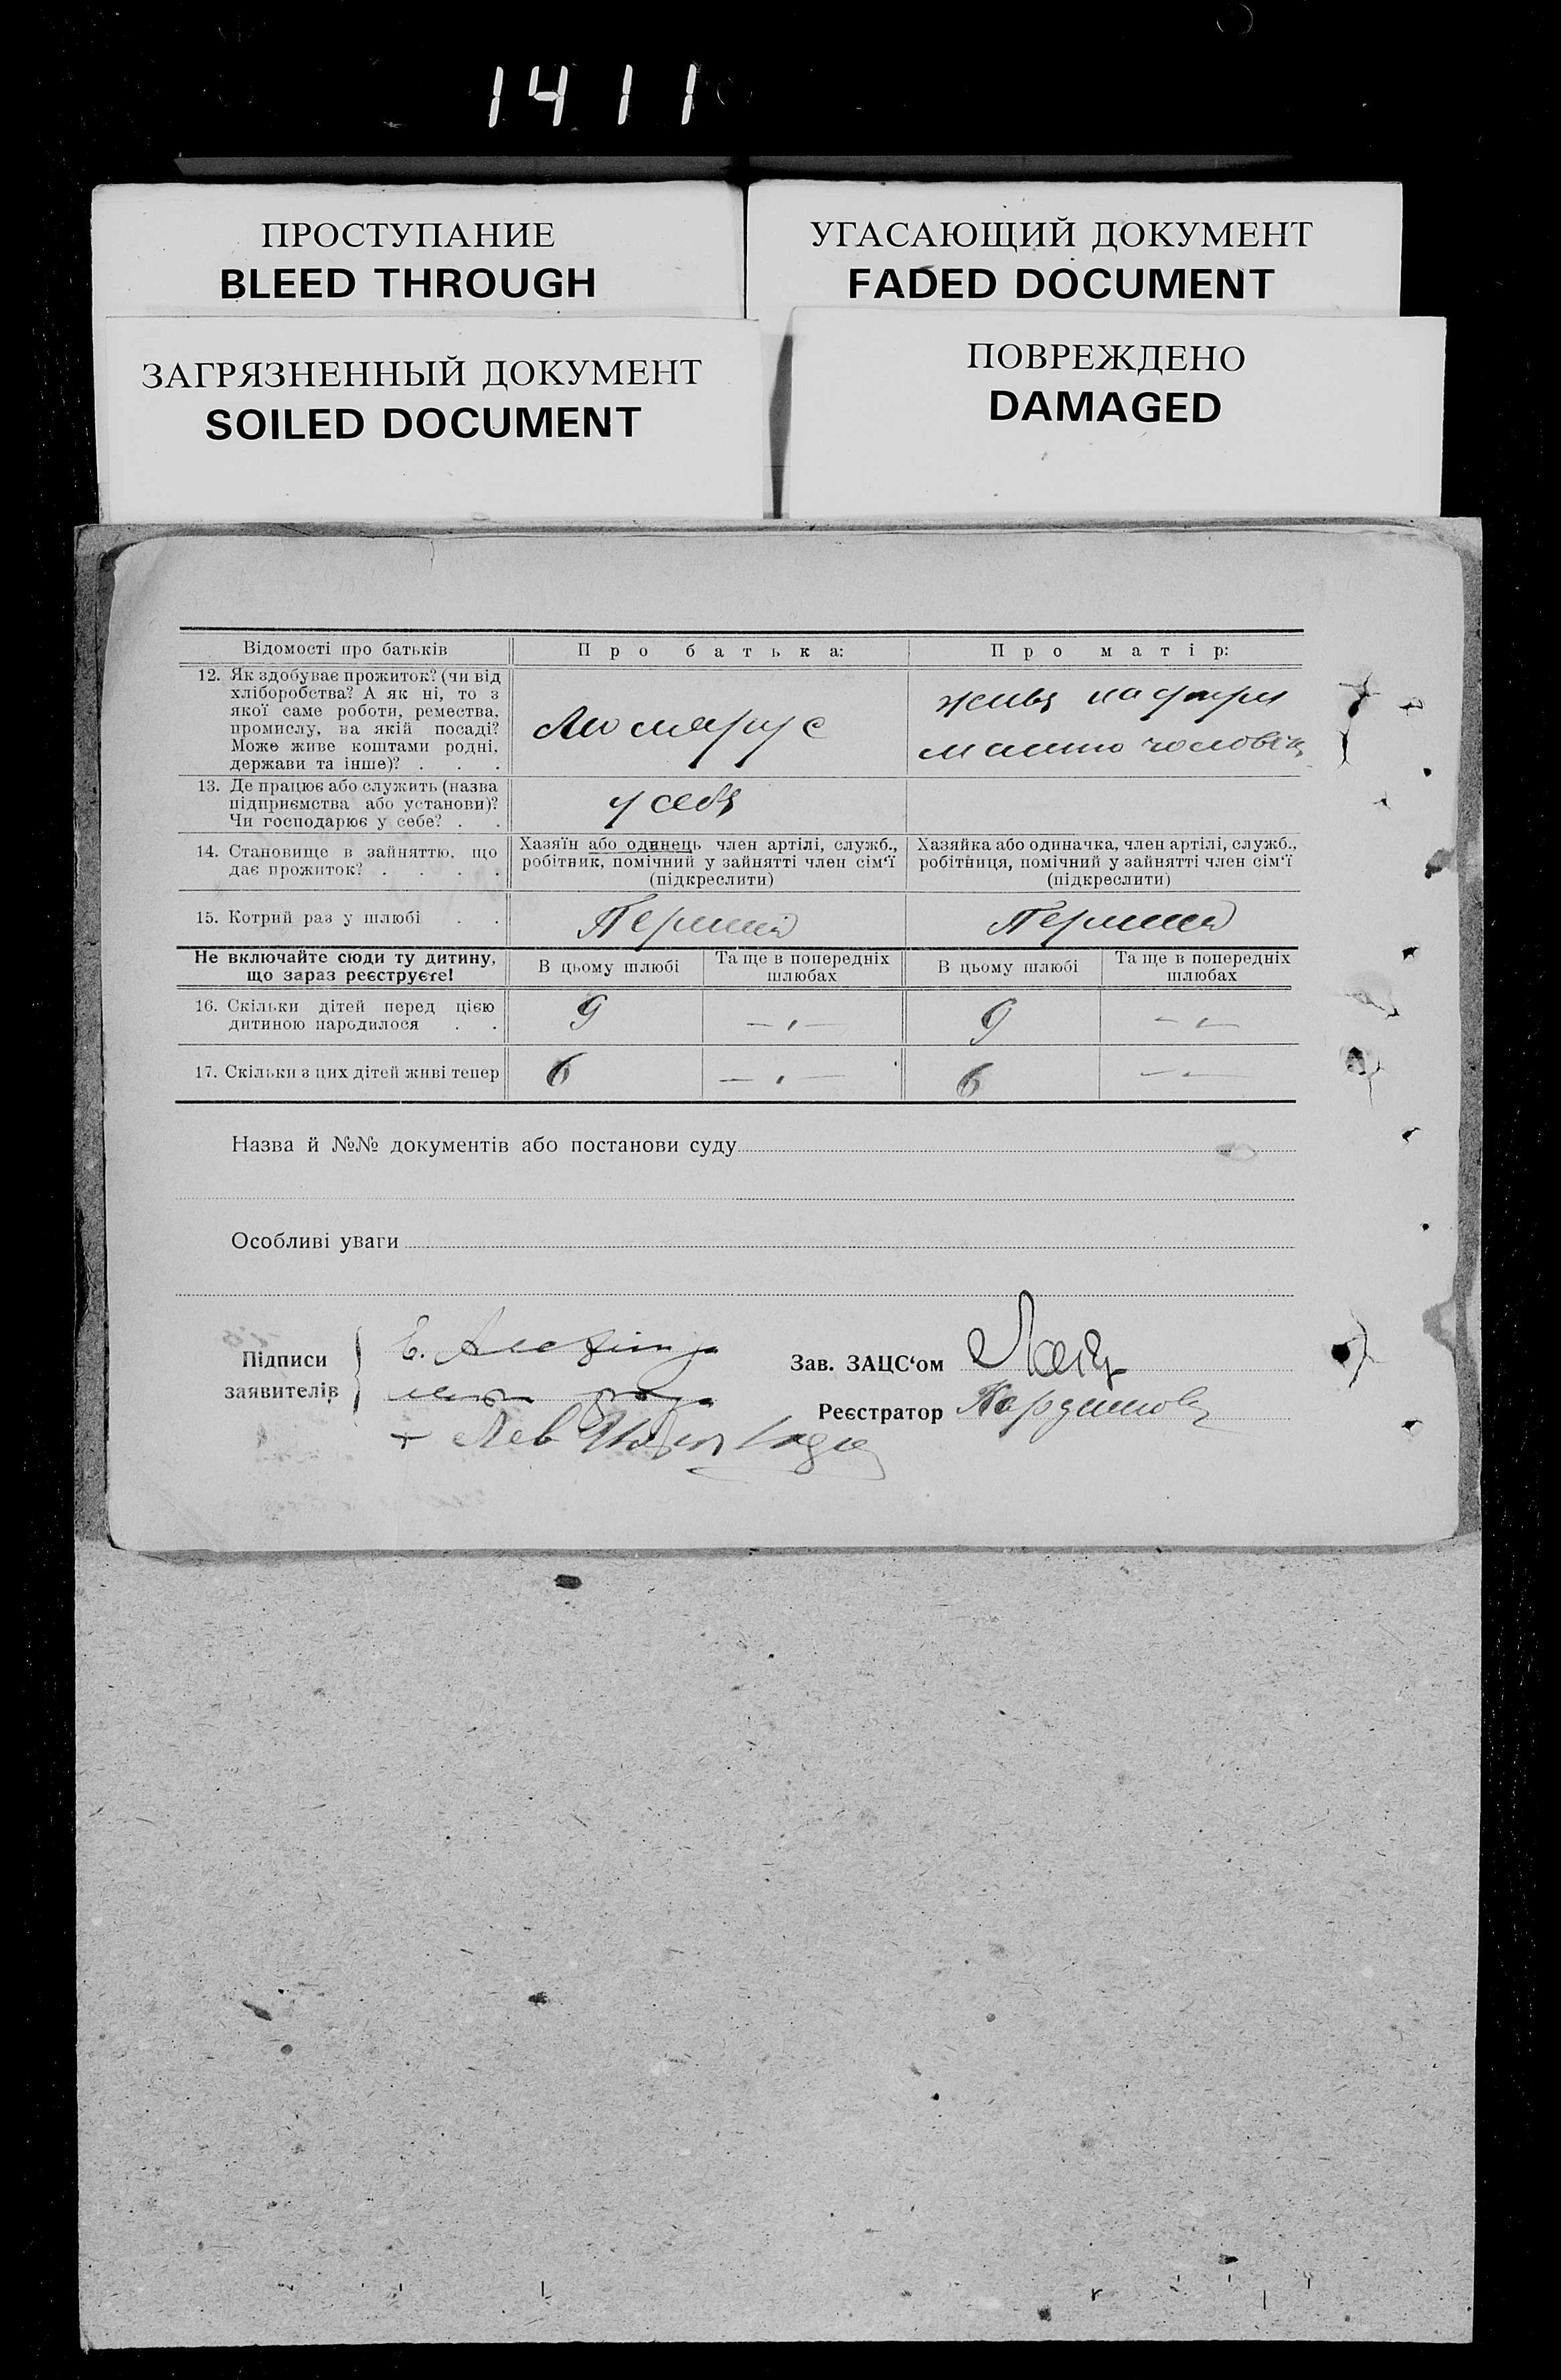 1411
ПРОСТУПАНИЕ
BLEED THROUGH
УГАСАЮЩИЙ ДОКУМЕНТ
FADED DOCUMENT
ЗАГРЯЗНЕННЫЙ ДОКУМЕНТ
SOILED DOCUMENT
ПОВРЕЖДЕНО
DAMAGED
Відомості про батьків
Про батька:
Про матір:
12. Як здобуває прожиток? (чи від
хліборобства? А як ні, то з
якої саме роботи, ремества,
промислу, на якій посаді?
Може живе коштами родні,
держави та інше)? . . .
живе на
13. Де працює або служить (назва
підприємства або установи)?
Чи господарює у себе? . .
у себе
14. Становище в зайняттю, що
дає прожиток? . . . .
Хазяїн або одинець член артілі, служб.,
робітник, помічний у зайнятті член сім'ї
(підкреслити)
Хазяйка або одиначка, член артілі, служб.,
робітниця, помічний у зайнятті член сім'ї
(підкреслити)
15. Котрий раз у шлюбі . .
Перший
Перший
Не включайте сюди ту дитину,
що зараз реєструєте!
В цьому шлюбі
Та ще в попередніх
шлюбах
В цьому шлюбі
Та ще в попередніх
шлюбах
16. Скільки дітей перед цією
дитиною народилося . .
9
9
17. Скільки з цих дітей живі тепер
6
6
Назва й №№ документів або постанови суду
Особливі уваги
Підписи
заявителів
Зав. ЗАЦС'ом
Реєстратор
Лев